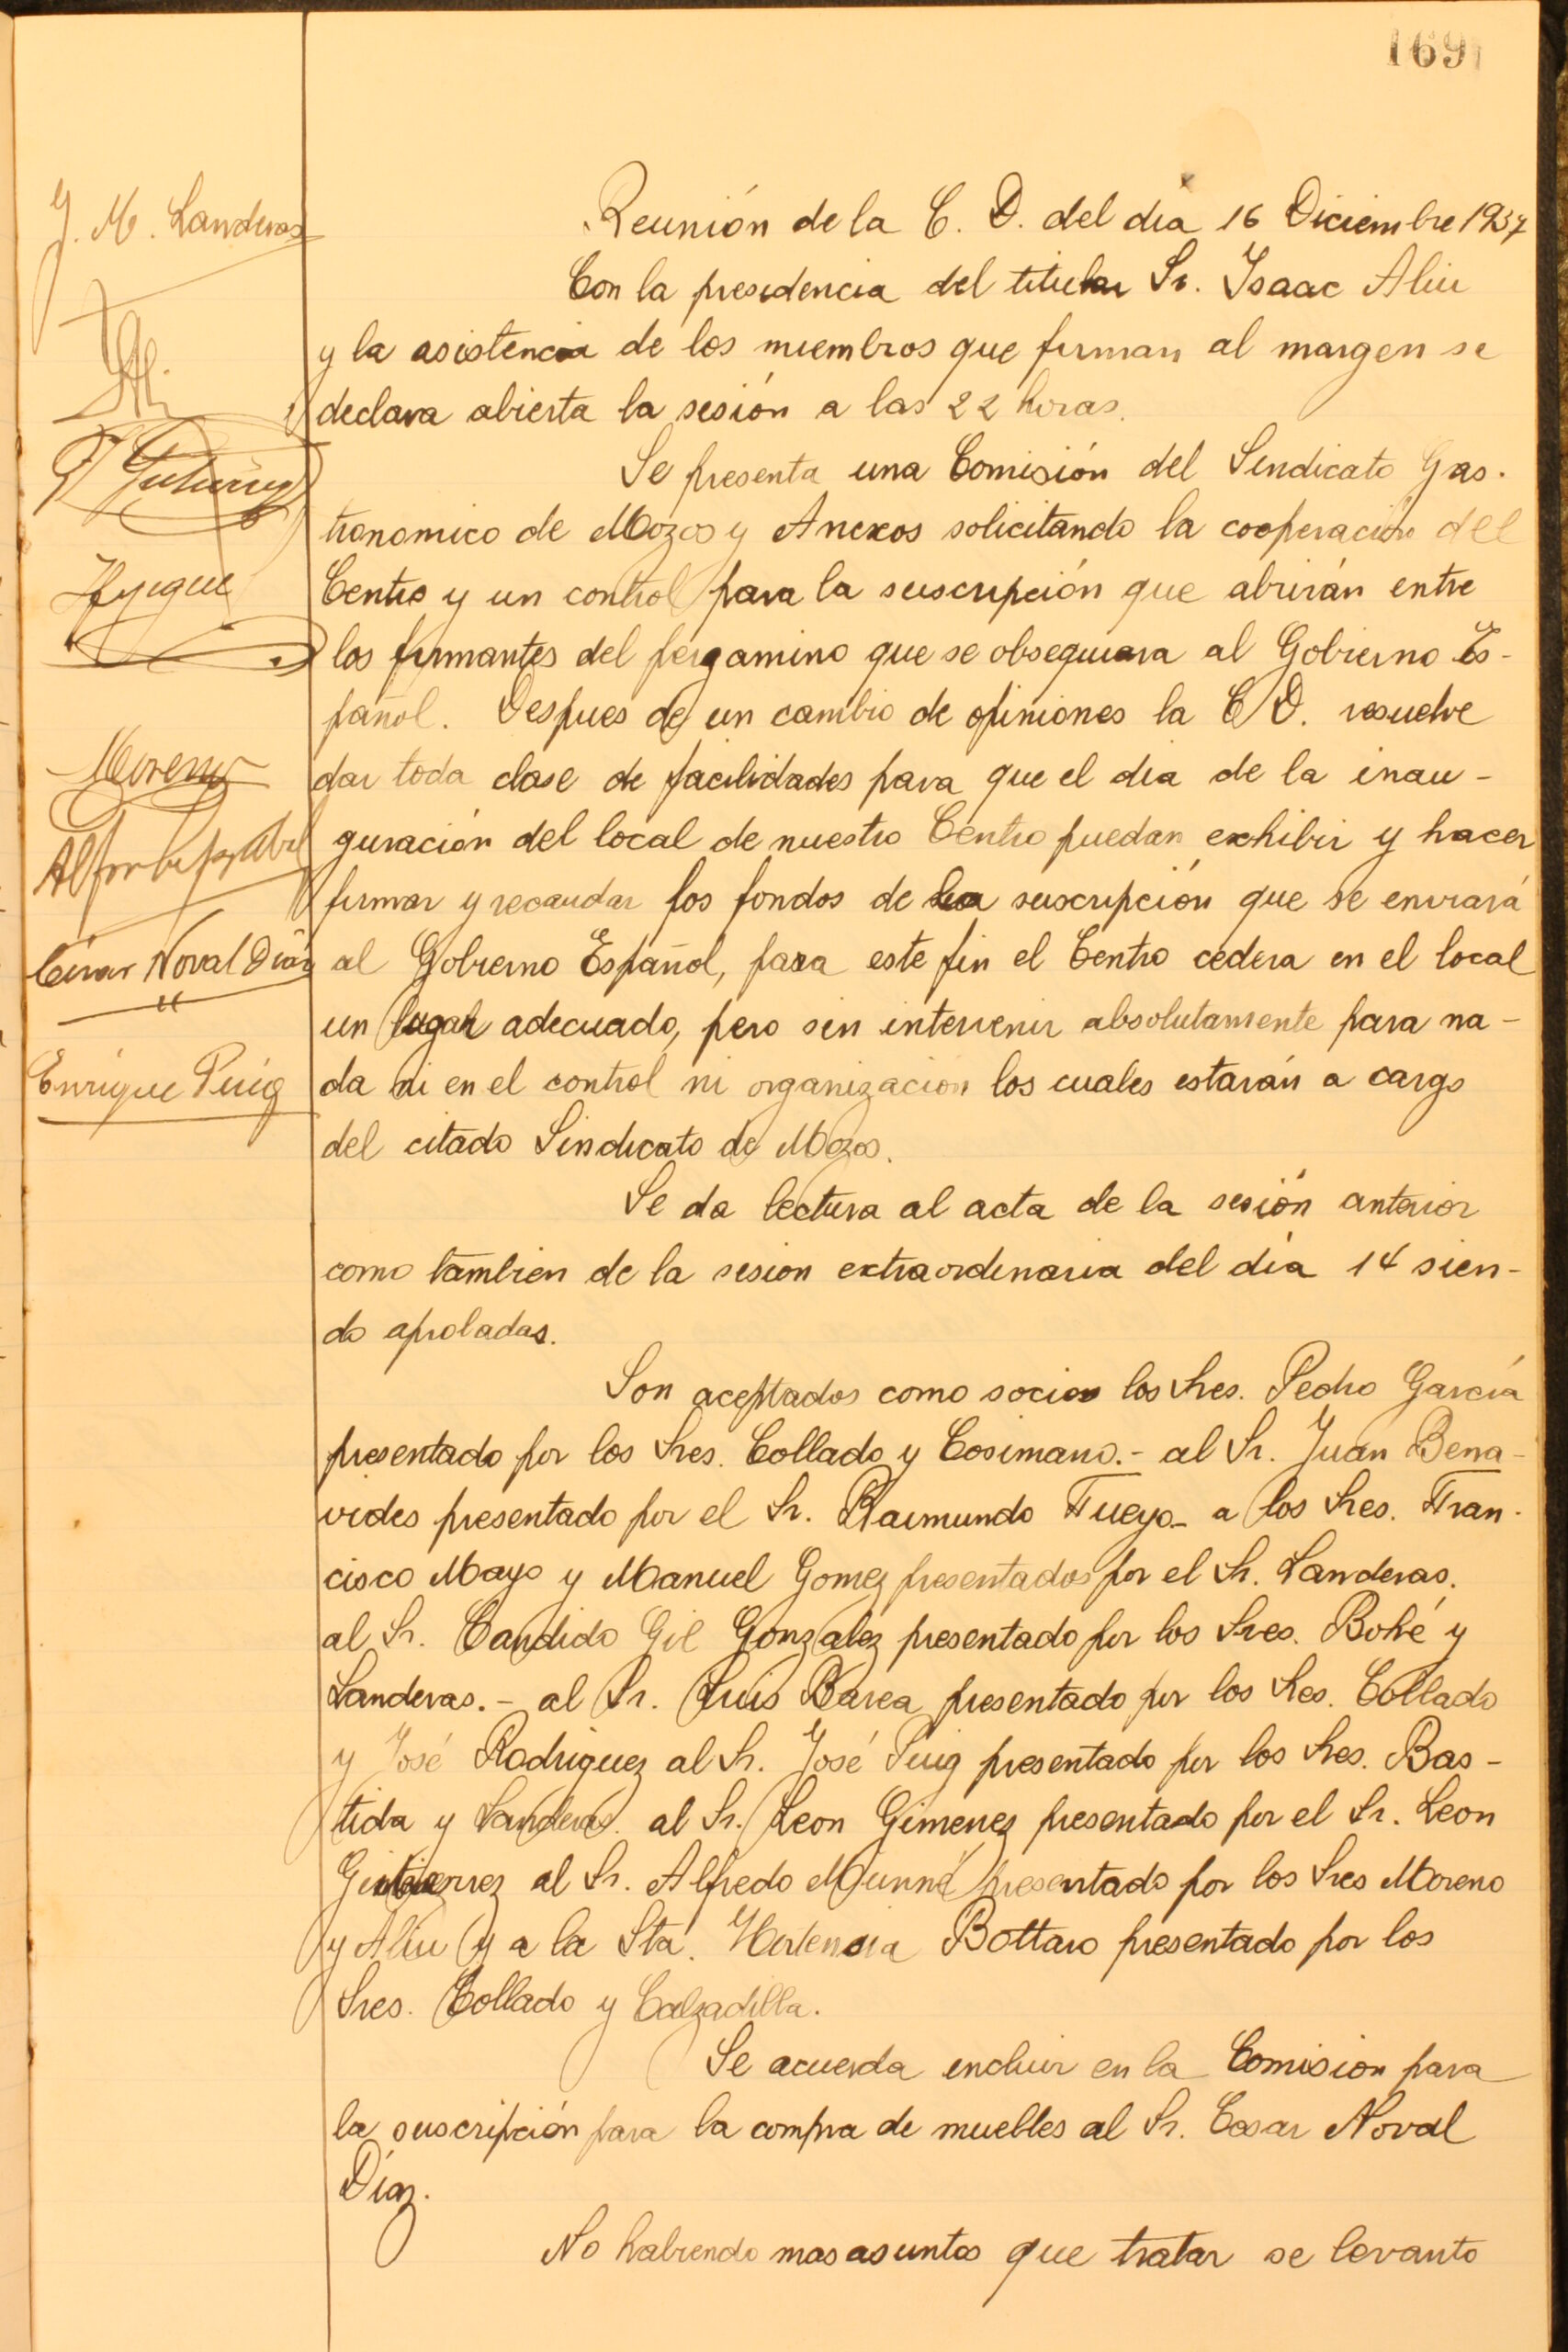 169
J. M. Landeras
Moreno
Cesar Noval Diaz
Enrique Puig
Reunión de la C. D. del día 16 Diciembre 1937
Con la presidencia del titular Sr. Isaac Aliu
y la asistencia de los miembros que firman al margen se
declara abierta la sesión a las 22 horas.
Se presenta una Comisión del Sindicato Gas-
tronomico de Mozos y Anexos solicitando la cooperación del
Centro y un control para la suscripción que abrirán entre
los firmantes del pergamino que se obsequiara al Gobierno Es-
pañol. Despues de un cambio de opiniones la C D. resuelve
dar toda clase de facilidades para que el dia de la inau-
guración del local de nuestro Centro puedan exhibir y hacer
firmar y recaudar los fondos de la suscripción que se enviará
al Gobierno Español, para este fin el Centro cedera en el local
un lugar adecuado, pero sin intervenir absolutamente para na-
da ni en el control ni organización los cuales estarán a cargo
del citado Sindicato de Mozos.
Se da lectura al acta de la sesión anterior
como tambien de la sesion extraordinaria del día 14 sien-
do aprobadas.
Son aceptados como socios los Sres. Pedro García
presentado por los Sres. Collado y Cosimano.- al Sr. Juan Bena-
vides presentado por el Sr. Raimundo Tueyo- a los Sres. Fran-
cisco Mayo y Manuel Gomez presentados por el Sr. Landeras.
al Sr. Candido Gil Gonzalez presentado por los Sres. Bohé y
Landeras.- al Sr. Luis Barea presentado por los Sres. Collado
y José Rodriguez al Sr. José Puig presentado por los Sres. Bas-
tida y Landeras. al Sr. Leon Gimenez presentado por el Sr. Leon
Gutierrez al Sr. Alfredo Munné presentado por los Sres Moreno
y Aliu y a la Sta. Hortensia Bottaro presentado por los
Sres. Collado y Calzadilla.
Se acuerda incluir en la Comision para
la suscripción para la compra de muebles al Sr. Cesar Noval
Díaz.
No habiendo mas asuntos que tratar se levanto